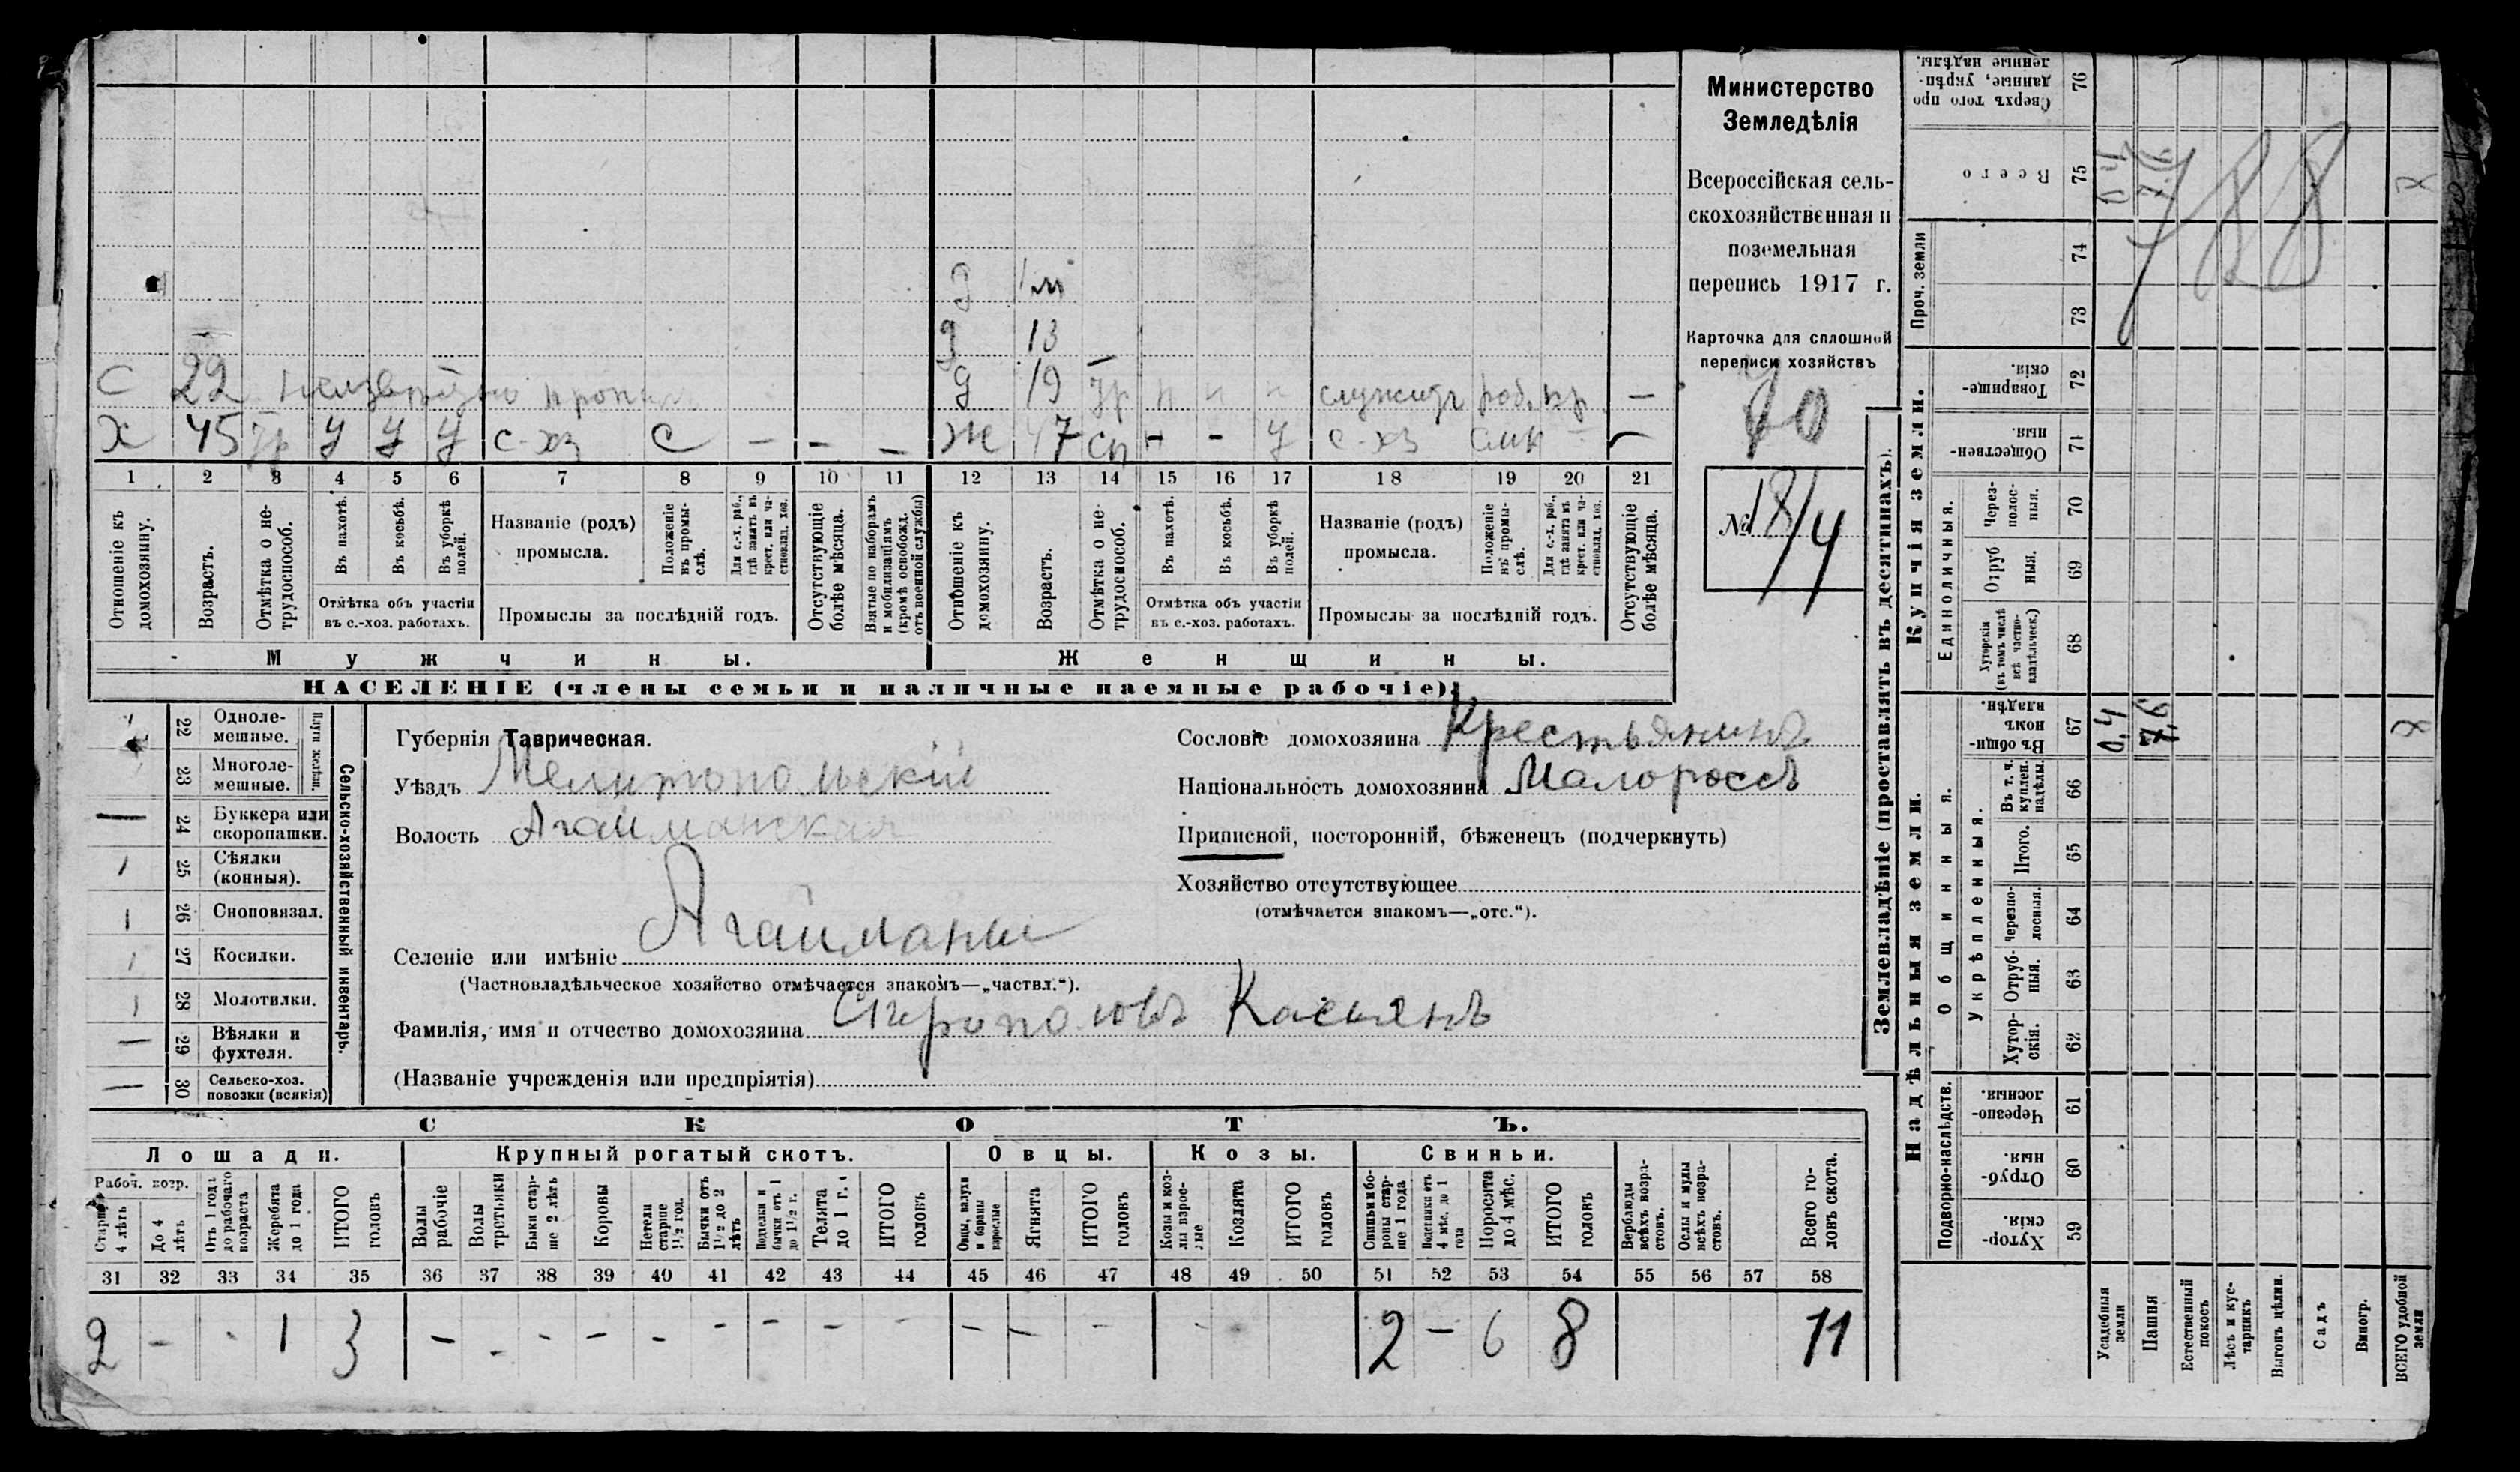 Министерство
Земледѣлія
Всероссійская сель-
скохозяйственная и
поземельная
перепись 1917 г.
Карточка для сплошной
переписи хозяйствъ
90
№ 18/4
Д 1 м
д 13
С 22 неизвѣстно пропал
д 19 служитъ раб. кр. —
Х 45 гр У У У с-хз С — — —
Ж 47 сп н - У с-хз
1 2 3 4 5 6 7 8 9 10 11 12 13 14 15 16 17 18 19 20 21
Отношеніе къ домохозяину.
Возрастъ.
Отмѣтка о не-трудоспособ.
Въ пахотѣ.
Въ косьбѣ.
Въ уборкѣ полей.
Отмѣтка объ участіи
въ с.-хоз. работахъ.
Названіе (родъ)
промысла.
Положеніе въ промы-слѣ.
Для с.-х. раб., гдѣ занятъ въ крест. или ча-стновлад. хоз.
Промыслы за послѣдній годъ.
Отсутствующіе болѣе мѣсяца.
Взятые по наборамъ и мобилизаціямъ (кромѣ освобожд. отъ военной службы)
Отношеніе къ домохозяину.
Возрастъ.
Отмѣтка о не-трудоспособ.
Въ пахотѣ.
Въ косьбѣ.
Въ уборкѣ полей.
Отмѣтка объ участіи
въ с.-хоз. работахъ.
Названіе (родъ)
промысла.
Положеніе въ промы-слѣ.
Для с.-х. раб., гдѣ занята въ крест. или ча-стновлад. хоз.
Промыслы за послѣдній годъ.
Отсутствующіе болѣе мѣсяца.
Мужчины.
Женщины.
НАСЕЛЕНІЕ (члены семьи и наличные наемные рабочіе).
Сельско-хозяйственный инвентарь.
Плуги желѣзн.
22 Одноле-мешные.
23 Многоле-мешные.
— 24 Буккера или скоропашки.
/ 25 Сѣялки (конныя).
/ 26 Сноповязал.
/ 27 Косилки.
/ 28 Молотилки.
— 29 Вѣялки и фухтеля.
— 30 Сельско-хоз. повозки (всякія)
Губернія Таврическая.
Уѣздъ Мелитопольскій
Волость Агайманская
Селеніе или имѣніе Агайманы
(Частновладѣльческое хозяйство отмѣчается знакомъ—„частвл.“).
Фамилія, имя и отчество домохозяина Касьянъ
(Названіе учрежденія или предпріятія)
Сословіе домохозяина Крестьянинъ
Національность домохозяина Малороссъ
Приписной, посторонній, бѣженецъ (подчеркнуть)
Хозяйство отсутствующее
(отмѣчается знакомъ—„отс.“).
СКОТЪ.
Лошади.
Крупный рогатый скотъ.
Овцы.
Козы.
Свиньи.
Рабоч. возр.
Старше 4 лѣтъ
До 4 лѣтъ
Отъ 1 года до рабочаго возраста
Жеребята до 1 года
ИТОГО головъ
Волы рабочіе
Волы третьяки
Быки стар-ше 2 лѣтъ
Коровы
Нетели старше 1½ год.
Бычки отъ 1½ до 2 лѣтъ
Подтелки и бычки отъ 1 до 1½ г.
Телята до 1 г.
ИТОГО головъ
Овцы, валухи и бараны взрослые
Ягнята
ИТОГО головъ
Козы и коз-лы взрос-лые
Козлята
ИТОГО головъ
Свиньи и бо-ровы стар-ше 1 года
Подсвинки отъ 4 мѣс. до 1 года
Поросята до 4 мѣс.
ИТОГО головъ
Верблюды всѣхъ возра-стовъ.
Ослы и мулы всѣхъ возра-стовъ.
Всего го-ловъ скота.
31 32 33 34 35 36 37 38 39 40 41 42 43 44 45 46 47 48 49 50 51 52 53 54 55 56 57 58
2 - - 1 3 - - - - - - - - - - - - - - 2 - 6 8 11
Землевладѣніе (проставлять въ десятинахъ).
Купчія земли.
Надѣльныя земли.
Сверхъ того про данные, укрѣп-ленные надѣлы. 76
Всего 75
Проч. земли 74 73
Товарище-скія. 72
Обществен-ныя. 71
Единоличныя.
Через-полос-ныя. 70
Отруб ныя. 69
Хуторскія (въ томъ числѣ всѣ частно-владѣльческ.) 68
Общинныя.
Въ общи-номъ владѣн. 67
Укрѣпленныя.
Въ т. ч. куплен. надѣлы. 66
Итого. 65
Черезпо-лосныя. 64
Отруб-ныя. 63
Хутор-скія. 62
Подворно-наслѣдств.
Черезпо-лосныя. 61
Отруб-ныя. 60
Хутор-скія. 59
Усадебныя земли
Пашня
Естественный покосъ
Лѣсъ и кус-тарникъ
Выгонъ цѣлин.
Садъ
Виногр.
ВСЕГО удобной земли
0,4 7,6 8
788